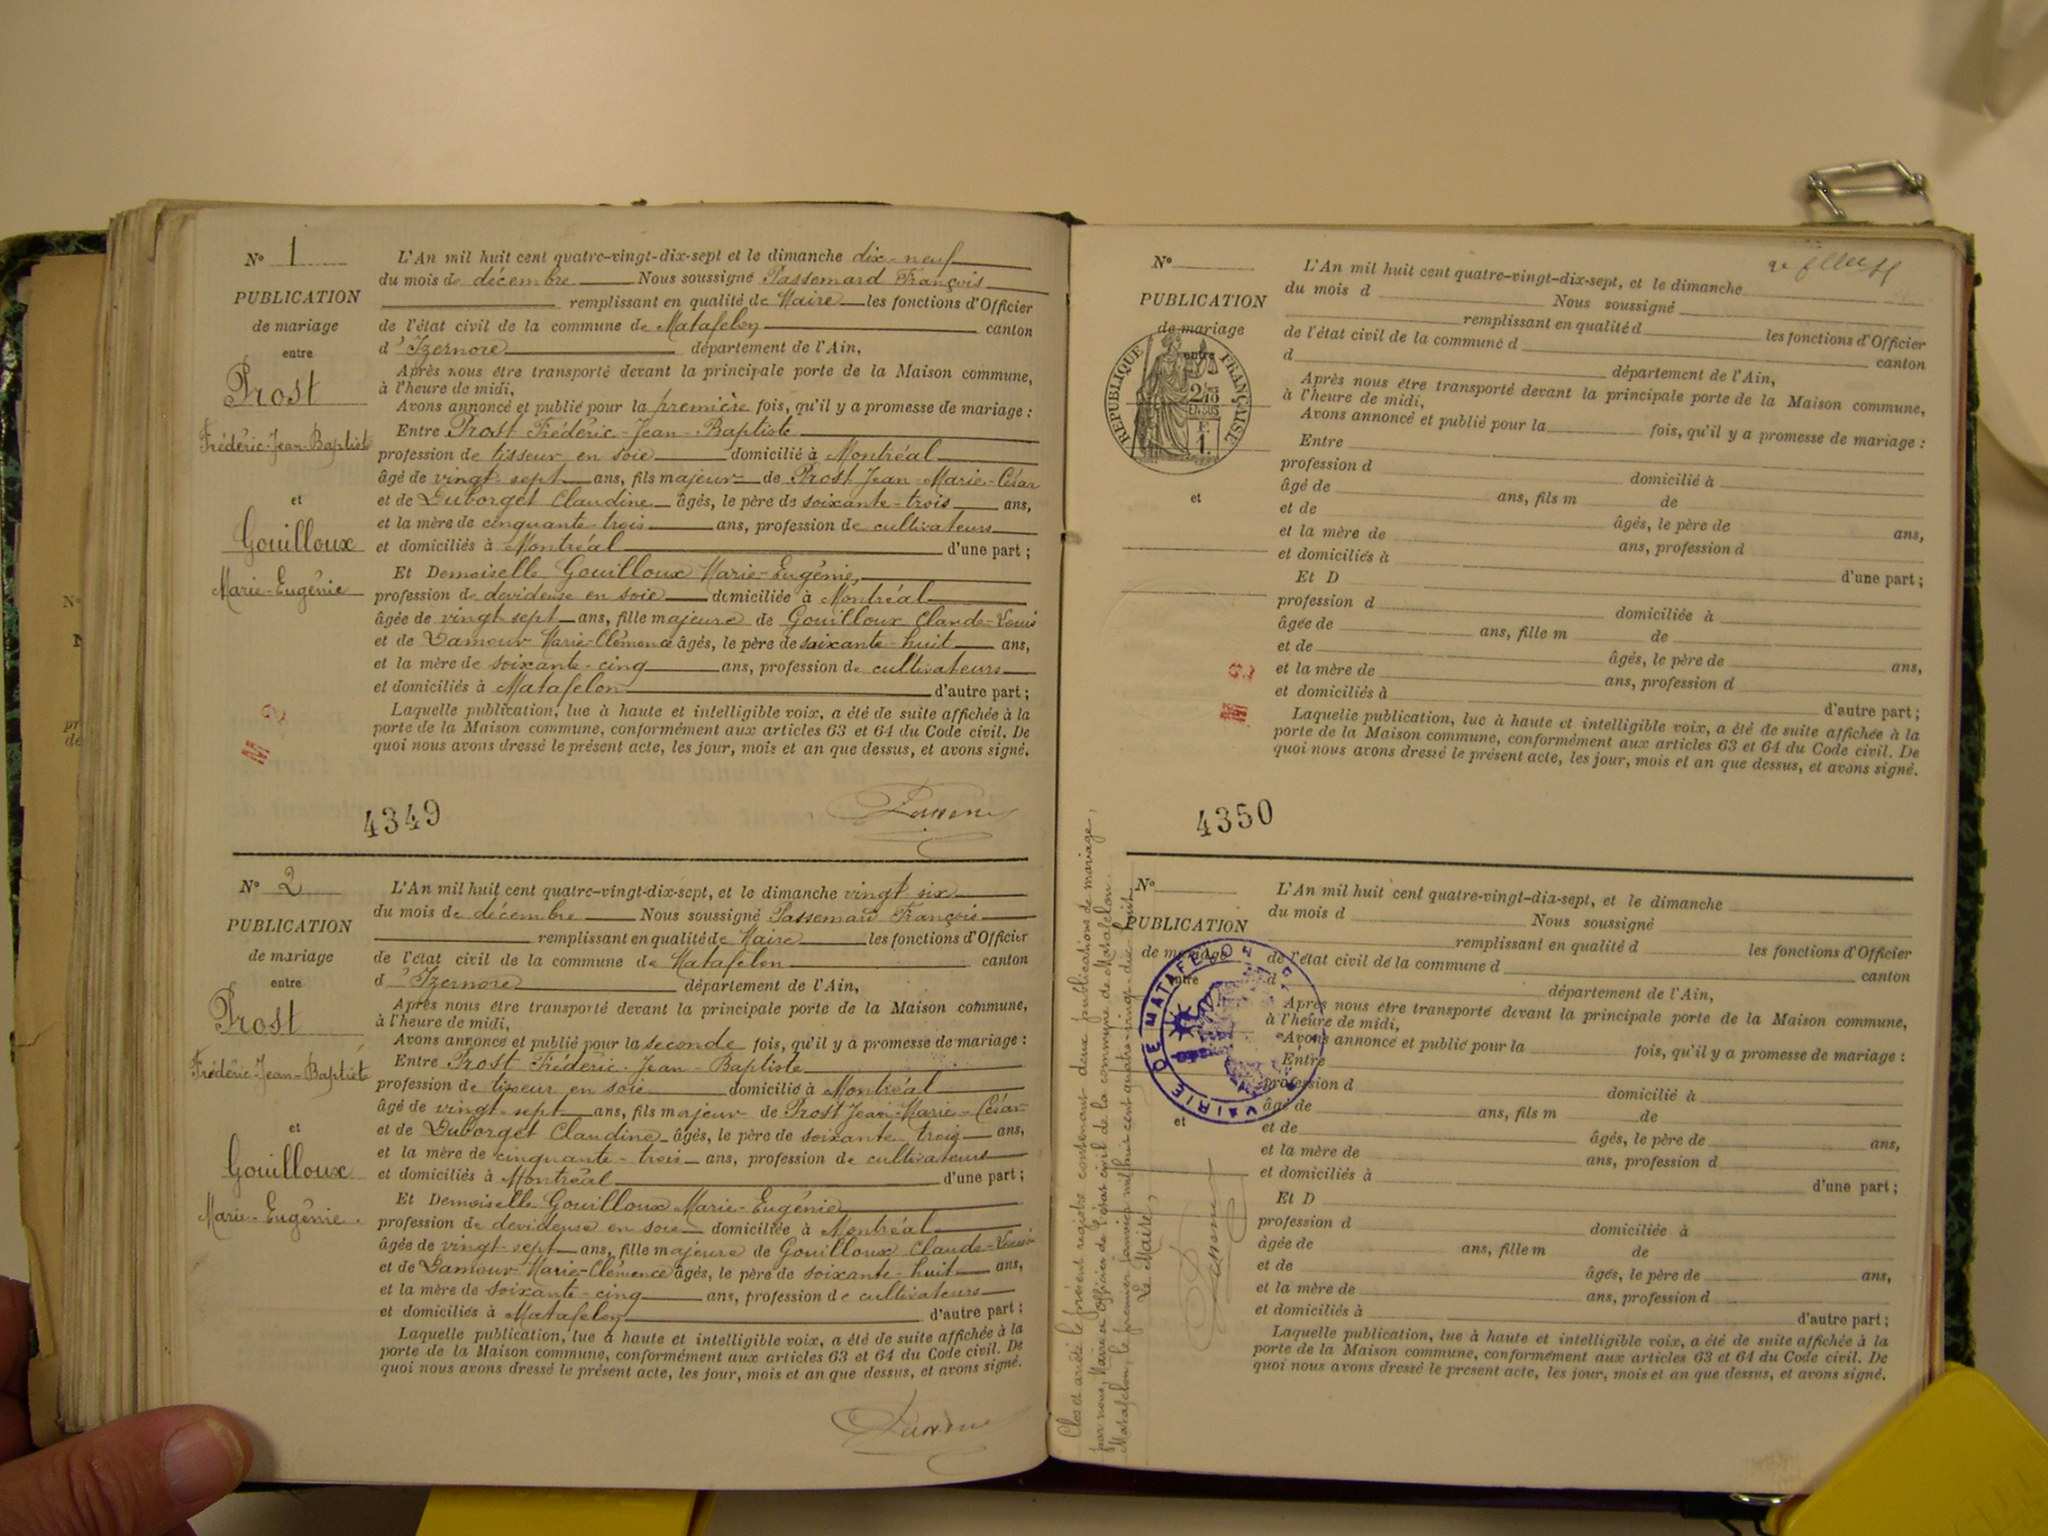 N° 1
PUBLICATION
de mariage
entre
Prost
Frédéric-Jean-Baptiste
et
Gouilloux
Marie-Eugénie
L'An mil huit cent quatre-vingt-dix-sept et le dimanche dix-neuf
du mois de décembre Nous soussigné Passemard François
remplissant en qualité de Maire les fonctions d'Officier
de l'état civil de la commune de Matafelon canton
d'Izernore département de l'Ain,
Après nous être transporté devant la principale porte de la Maison commune,
à l'heure de midi,
Avons annoncé et publié pour la première fois, qu'il y a promesse de mariage :
Entre Prost Frédéric-Jean-Baptiste
profession de tisseur en soie domicilié à Montréal
âgé de vingt-sept ans, fils majeur de Prost Jean-Marie-César
et de Duborget Claudine âgés, le père de soixante-trois ans,
et la mère de cinquante-trois ans, profession de cultivateurs
et domiciliés à Montréal d'une part ;
Et Demoiselle Gouilloux Marie-Eugénie,
profession de devideuse en soie domiciliée à Montréal
âgée de vingt-sept ans, fille majeure de Gouilloux Claude-Louis
et de Damour Marie-Clémence âgés, le père de soixante-huit ans,
et la mère de soixante-cinq ans, profession de cultivateurs
et domiciliés à Matafelon d'autre part ;
Laquelle publication, lue à haute et intelligible voix, a été de suite affichée à la
porte de la Maison commune, conformément aux articles 63 et 64 du Code civil. De
quoi nous avons dressé le présent acte, les jour, mois et an que dessus, et avons signé.
4349
N° 2
PUBLICATION
de mariage
entre
Prost
Frédéric-Jean-Baptiste
et
Gouilloux
Marie-Eugénie.
L'An mil huit cent quatre-vingt-dix-sept, et le dimanche vingt six
du mois de décembre Nous soussigné Passemard François
remplissant en qualité de Maire les fonctions d'Officier
de l'état civil de la commune de Matafelon canton
d'Izernore département de l'Ain,
Après nous être transporté devant la principale porte de la Maison commune,
à l'heure de midi,
Avons annoncé et publié pour la seconde fois, qu'il y à promesse de mariage :
Entre Prost Frédéric-Jean-Baptiste
profession de tisseur en soie domicilié à Montréal
âgé de vingt-sept ans, fils majeur de Prost Jean-Marie-César
et de Duborget Claudine âgés, le père de soixante trois ans,
et la mère de cinquante-trois ans, profession de cultivateurs
et domiciliés à Montréal d'une part ;
Et Demoiselle Gouilloux Marie-Eugénie
profession de devideuse en soie domiciliée à Montréal
âgée de vingt-sept ans, fille majeure de Gouilloux Claude-Louis
et de Damour Marie-Clémence âgés, le père de soixante-huit ans,
et la mère de soixante-cinq ans, profession de cultivateurs
et domiciliés à Matafelon d'autre part ;
Laquelle publication, lue à haute et intelligible voix, a été de suite affichée à la
porte de la Maison commune, conformément aux articles 63 et 64 du Code civil. De
quoi nous avons dressé le présent acte, les jour, mois et an que dessus, et avons signé.
N°
PUBLICATION
de mariage
entre
RÉPUBLIQUE FRANÇAISE
et
L'An mil huit cent quatre-vingt-dix-sept, et le dimanche
du mois d Nous soussigné
remplissant en qualité d les fonctions d'Officier
de l'état civil de la commune d canton
d département de l'Ain,
Après nous être transporté devant la principale porte de la Maison commune,
à l'heure de midi,
Avons annoncé et publié pour la fois, qu'il y a promesse de mariage :
Entre
profession d domicilié à
âgé de ans, fils m de
et de âgés, le père de ans,
et la mère de ans, profession d
et domiciliés à d'une part ;
Et D
profession d domiciliée à
âgée de ans, fille m de
et de âgés, le père de ans,
et la mère de ans, profession d
et domiciliés à d'autre part ;
Laquelle publication, lue à haute et intelligible voix, a été de suite affichée à la
porte de la Maison commune, conformément aux articles 63 et 64 du Code civil. De
quoi nous avons dressé le présent acte, les jour, mois et an que dessus, et avons signé.
4350
Clos et arrêté le présent registre contenant deux publications de mariage,
par nous, Maire et Officier de l'état civil de la commune de Matafelon.
Matafelon, le premier janvier mil huit cent quatre-vingt-dix-huit.
Le Maire,
N°
PUBLICATION
de mariage
entre
MAIRIE DE MATAFELON
et
L'An mil huit cent quatre-vingt-dix-sept, et le dimanche
du mois d Nous soussigné
remplissant en qualité d les fonctions d'Officier
de l'état civil de la commune d canton
d département de l'Ain,
Après nous être transporté devant la principale porte de la Maison commune,
à l'heure de midi,
Avons annoncé et publié pour la fois, qu'il y a promesse de mariage :
Entre
profession d domicilié à
âgé de ans, fils m de
et de âgés, le père de ans,
et la mère de ans, profession d
et domiciliés à d'une part ;
Et D
profession d domiciliée à
âgée de ans, fille m de
et de âgés, le père de ans,
et la mère de ans, profession d
et domiciliés à d'autre part ;
Laquelle publication, lue à haute et intelligible voix, a été de suite affichée à la
porte de la Maison commune, conformément aux articles 63 et 64 du Code civil. De
quoi nous avons dressé le présent acte, les jour, mois et an que dessus, et avons signé.